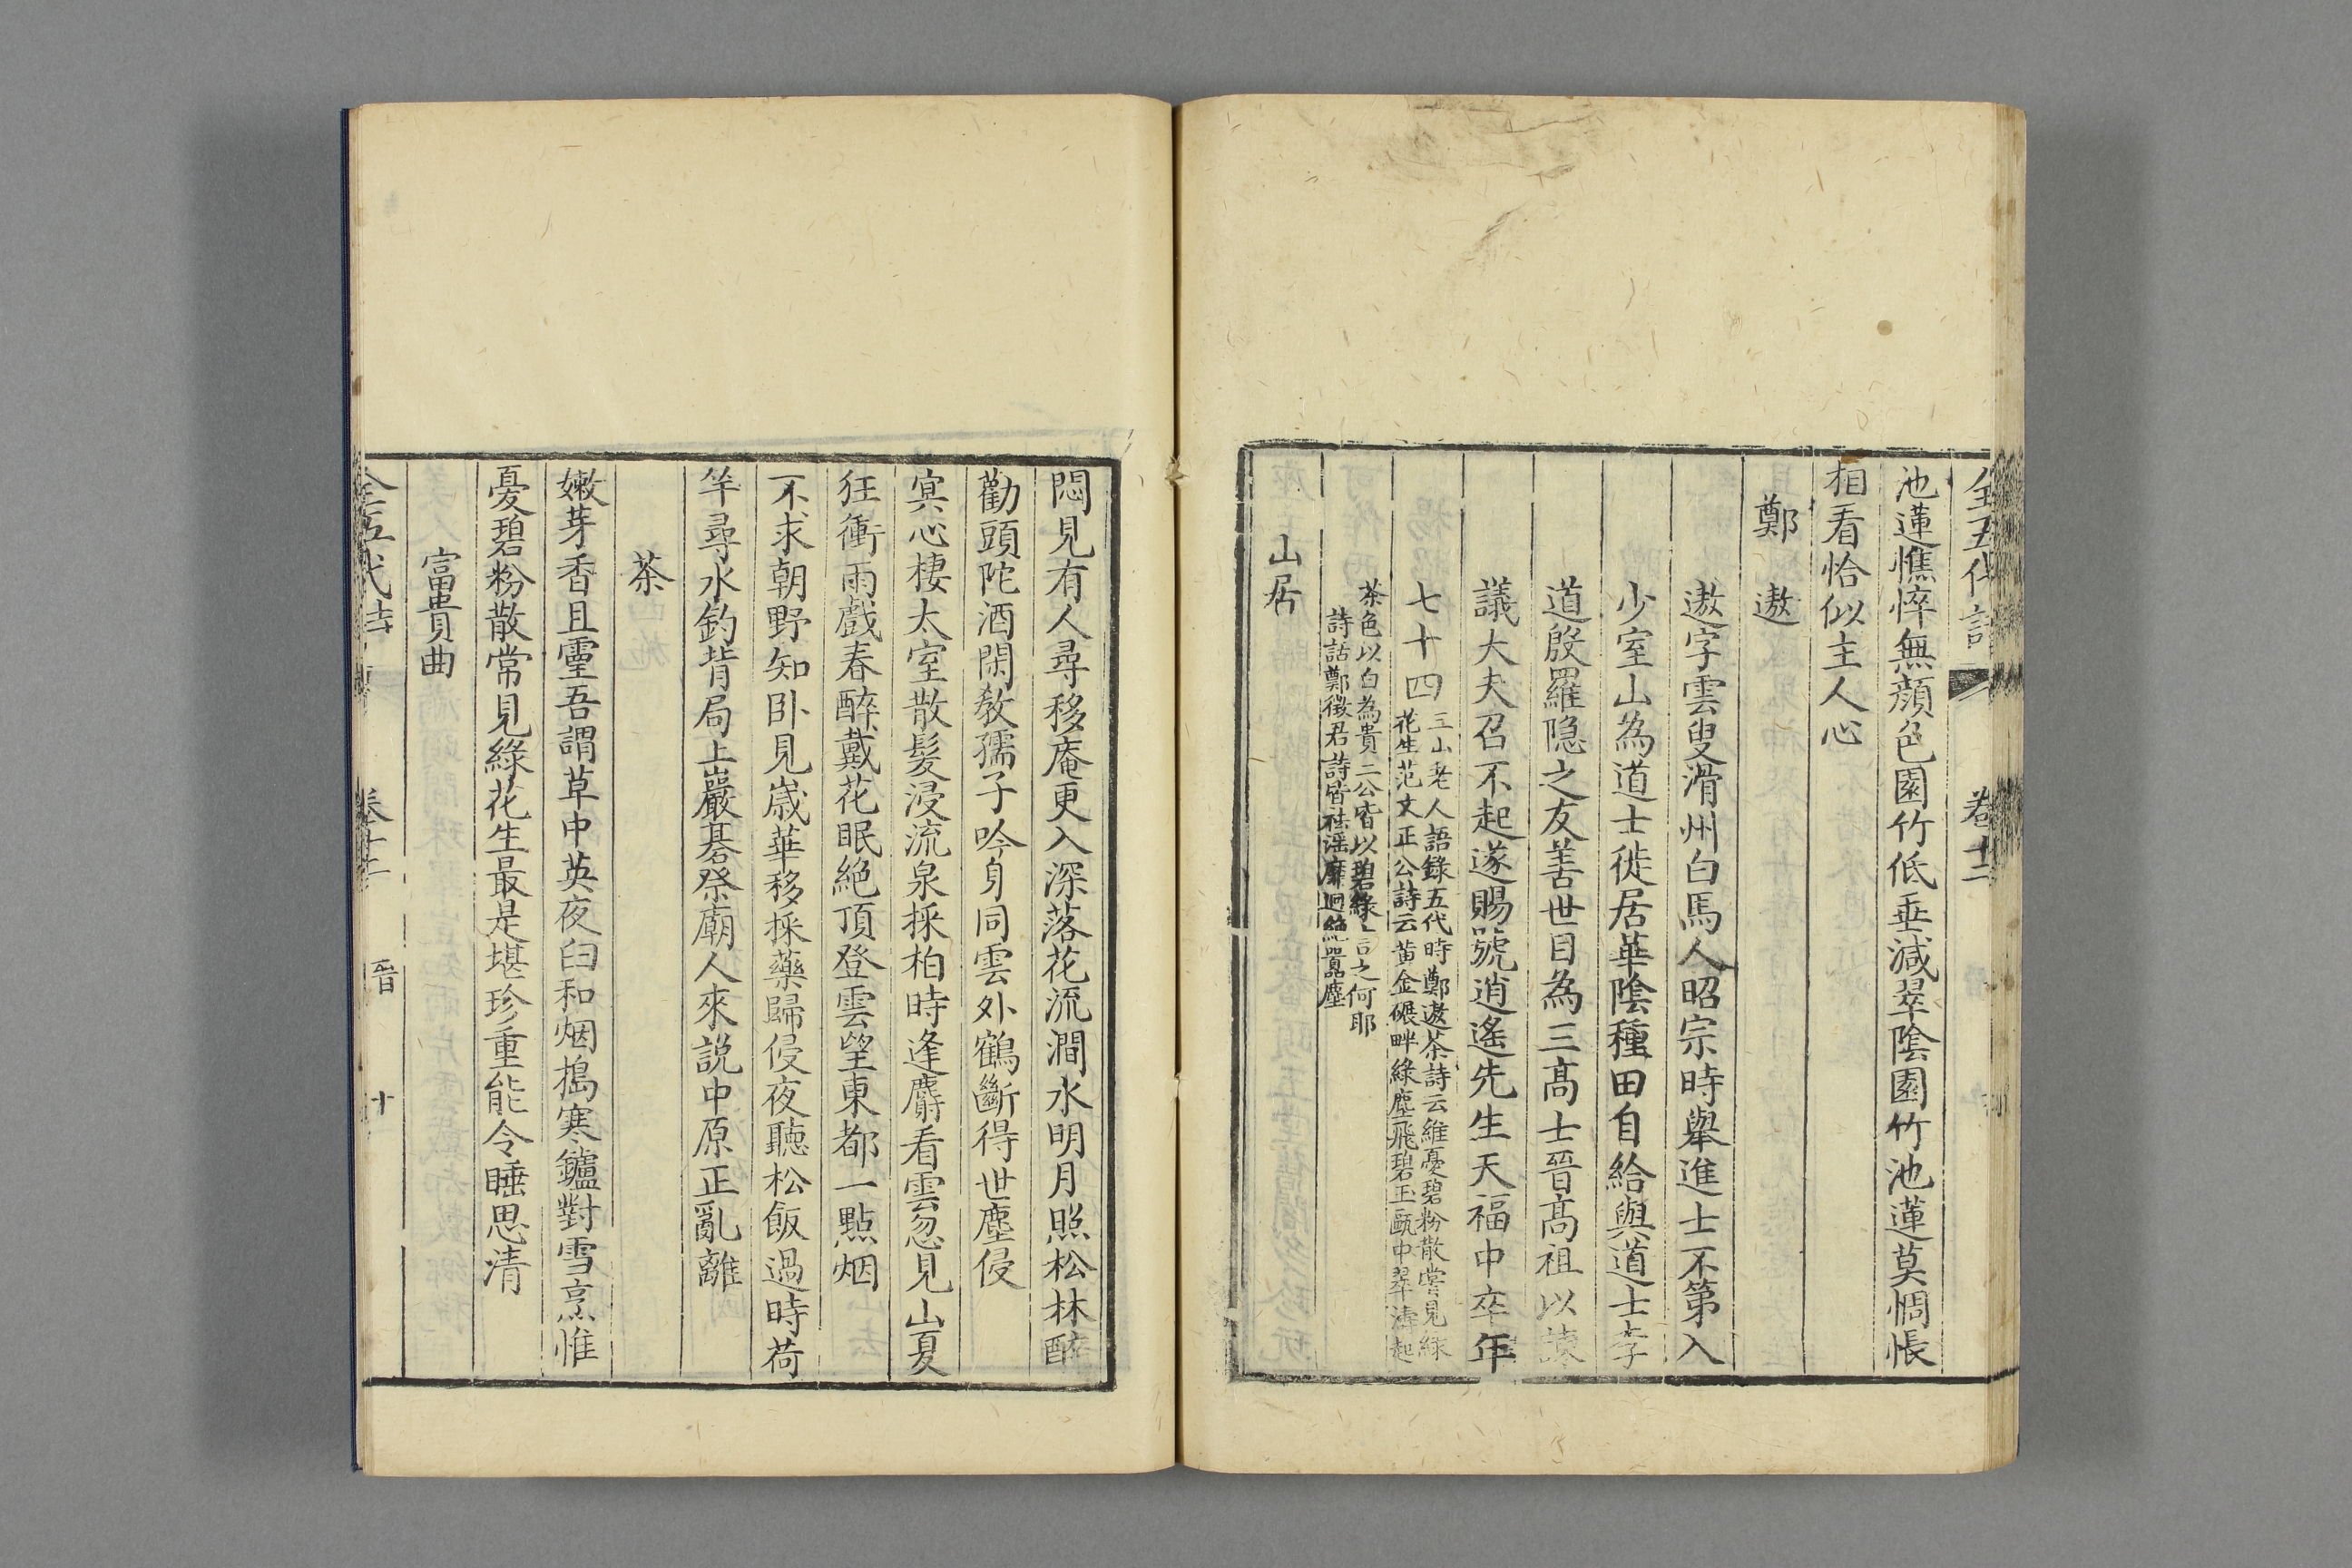 全五代詩 卷十二
池蓮憔悴無顏色園竹低垂減翠陰園竹池蓮莫惆悵
相看恰似主人心
鄭遨
遨字雲叟滑州白馬人昭宗時舉進士不第入
少室山為道士徙居華陰種田自給與道士李
道殷羅隱之友善世目為三高士晉高祖以諫
議大夫召不起遂賜號逍遙先生天福中卒年
七十四
三山老人語錄五代時鄭遨茶詩云維憂碧粉散嘗見綠
花生范文正公詩云黃金碾畔綠塵飛碧玉甌中翠濤起
茶色以白為貴二公皆以碧綠言之何耶
詩話鄭徵君詩皆祛淫靡迥絕囂塵
山居
悶見有人尋移庵更入深落花流澗水明月照松林醉
勸頭陀酒閑教孺子吟身同雲外鶴斷得世塵侵
冥心棲太室散髮浸流泉採柏時逢麝看雲忽見山夏
狂衝雨戲春醉戴花眠絕頂登雲望東都一點烟
不求朝野知卧見歲華移採藥歸侵夜聽松飯過時荷
竿尋水釣背局上巖碁祭廟人來說中原正亂離
茶
嫩芽香且靈吾謂草中英夜臼和烟搗寒鑪對雪烹惟
憂碧粉散常見綠花生最是堪珍重能令睡思清
富貴曲
全五代詩 卷十二 晉 十